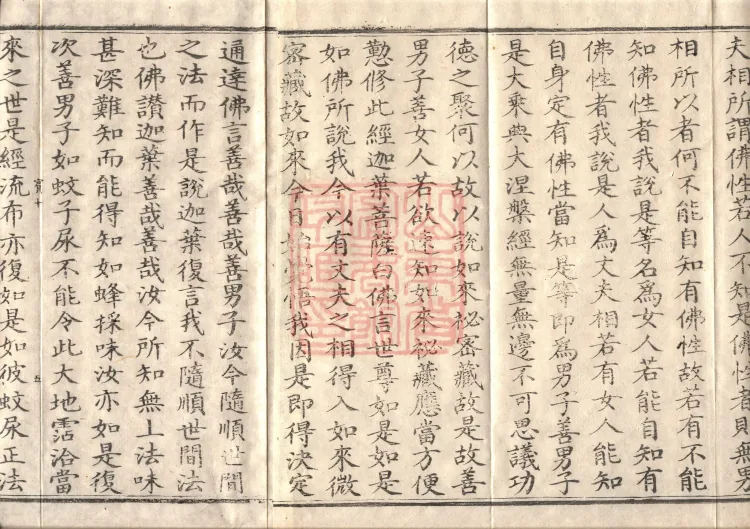 夫相所謂佛性若人不知是佛性者則無男
相所以者何不能自知有佛性故若有不能
知佛性者我說是等名爲女人若能自知有
佛性者我說是人爲丈夫相若有女人能知
自身定有佛性當知是等即爲男子善男子
是大乘典大涅槃經無量無邊不可思議功
德之聚何以故以說如來祕密藏故是故善
男子善女人若欲速知如來祕藏應當方便
懃修此經迦葉菩薩白佛言世尊如是如是
如佛所說我今以有丈夫之相得入如來微
密藏故如來今日始覺悟我因是即得決定
通達佛言善哉善哉善男子汝今隨順世間
之法而作是說迦葉復言我不隨順世間法
也佛讚迦葉善哉善哉汝今所知無上法味
甚深難知而能得知如蜂採味汝亦如是復
次善男子如蚊子尿不能令此大地霑洽當
來之世是經流布亦復如是如彼蚊尿正法